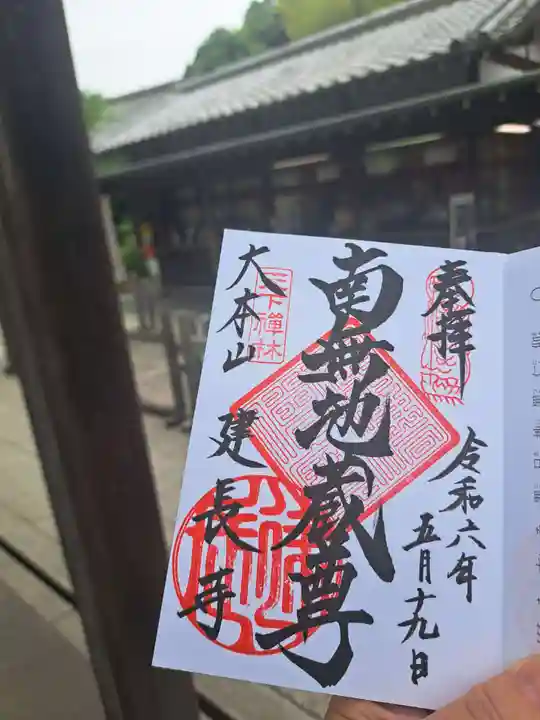 奉拝
令和六年
五月十九日
南無地蔵尊
天下禅林
大本山
建長寺